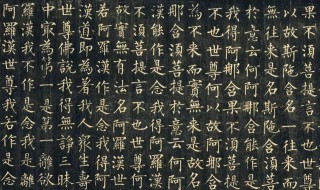 果不須菩提言不也世尊
以故斯陀含名一往來而
無往來是名斯陀含須菩
於意云何阿那含能作是
我得阿那含果不須菩提
不也世尊何以故阿那含
為不來而實無來是故名
那含須菩提於意云何阿
漢能作是念我得阿羅漢
不須菩提言不也世尊何
故實無有法名阿羅漢世
若阿羅漢作是念我得阿
漢道即為著我人眾生壽
世尊佛說我得無諍三昧
中㝡為第一是第一離欲
羅漢我不作是念我是離
阿羅漢世尊我若作是念